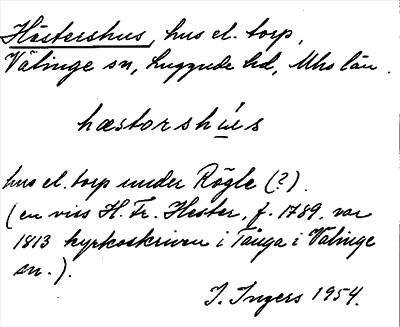 Hästershus, hus el. torp,
Välinge sn, Luggude hd, Mhs län.
hæstorshús
hus el. torp under Rögle (?).
(en viss H. Fr. Hester, f. 1789, var
1813 kyrkoskriven i Tånga i Välinge
sn.).
I. Ingers 1954.